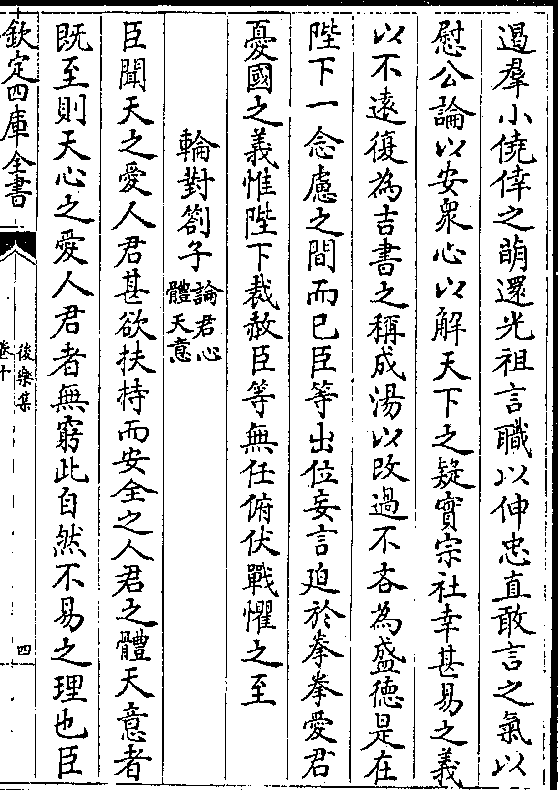 過羣小僥倖之萌還光祖言職以伸忠直敢言之氣以
慰公論以安衆心以解天下之疑實宗社幸甚易之義
以不遠復為吉書之稱成湯以改過不吝為盛徳是在
陛下一念慮之間而已臣等出位妄言迫於拳拳愛君
憂國之義惟陛下裁赦臣等無任俯伏戰懼之至
輪對劄子論君心體天意
臣聞天之愛人君甚欲扶持而安全之人君之體天意者
既至則天心之愛人君者無窮此自然不易之理也臣
欽定四庫全書
後樂集
卷十
四